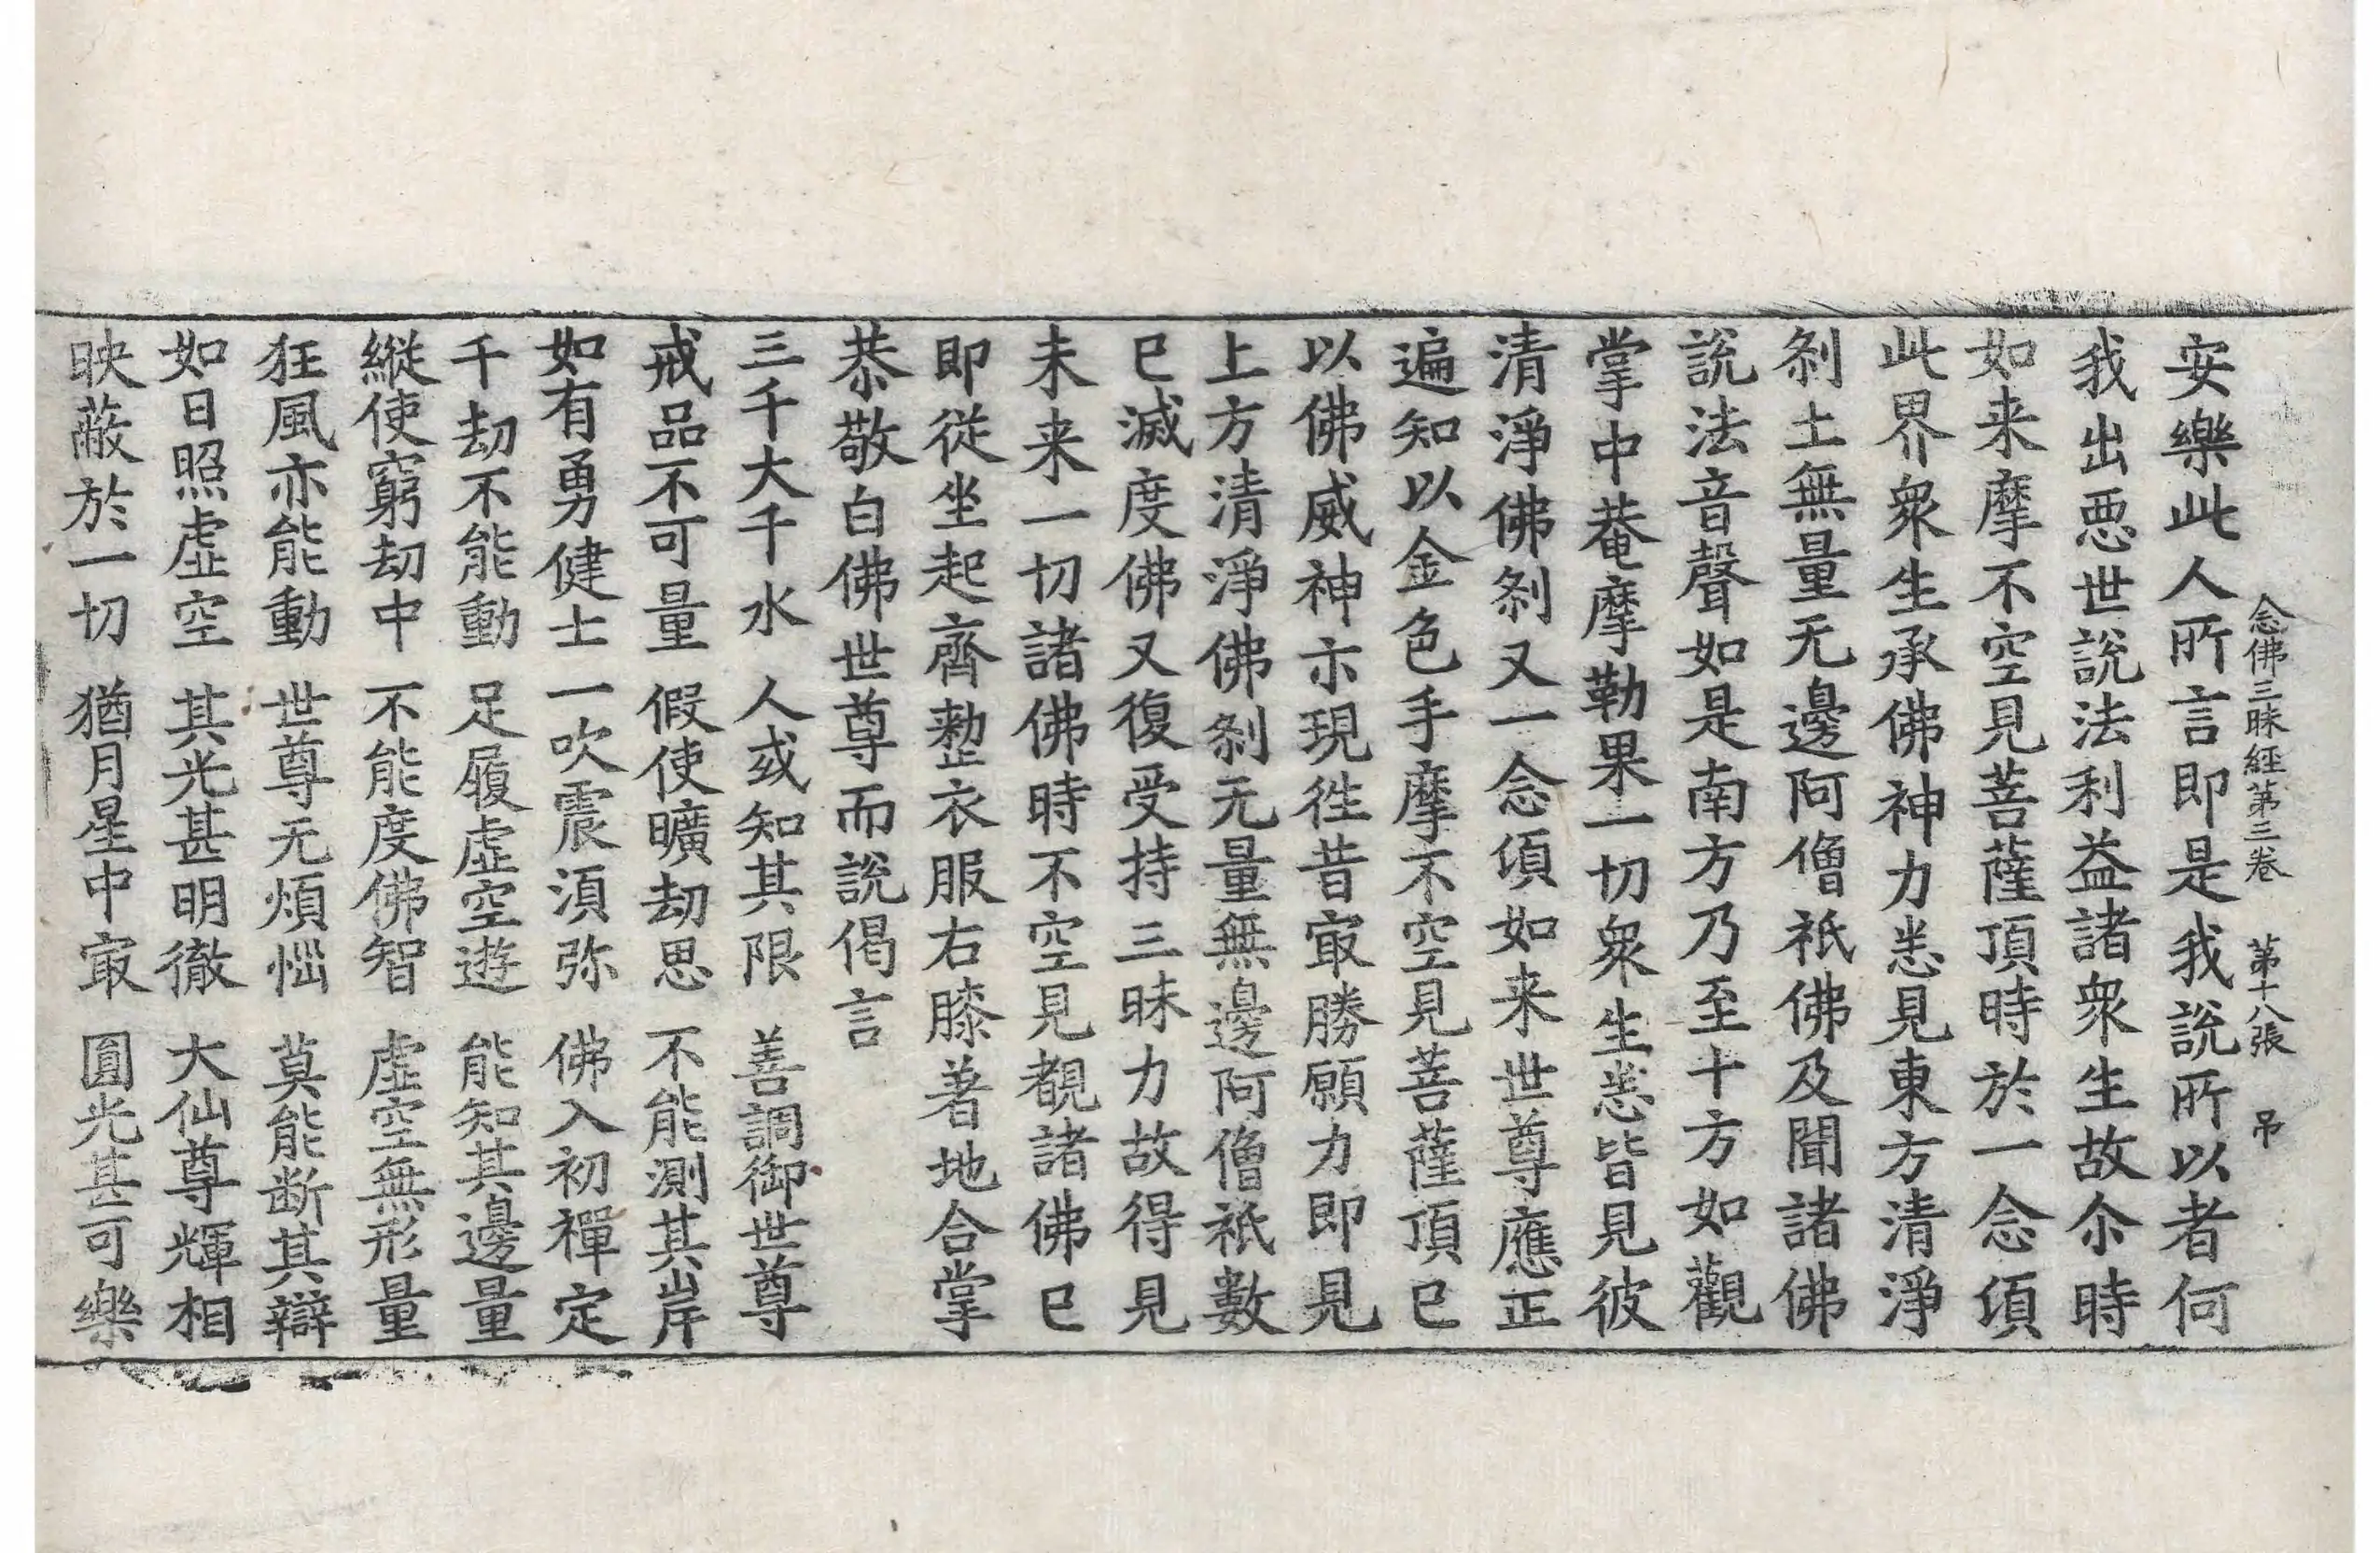 念佛三昧經第三卷 第十八張 帛
安樂此人所言即是我說所以者何
我出惡世說法利益諸衆生故尒時
如来摩不空見菩薩頂時於一念須
此界衆生承佛神力悉見東方清淨
刹土無量无邊阿僧祇佛及聞諸佛
說法音聲如是南方乃至十方如觀
掌中菴摩勒果一切衆生悉皆見彼
清淨佛刹又一念須如来世尊應正
遍知以金色手摩不空見菩薩頂已
以佛威神示現徃昔㝡勝願力即見
上方清淨佛刹无量無邊阿僧祇數
已滅度佛又復受持三昧力故得見
未来一切諸佛時不空見覩諸佛已
即從坐起齊整衣服右膝著地合掌
恭敬白佛世尊而說偈言
三千大千水 人或知其限 善調御世尊
戒品不可量 假使曠劫思 不能測其岸
如有勇健士 一吹震湏弥 佛入初禪定
千劫不能動 足履虛空遊 能知其邊量
縱使窮劫中 不能度佛智 虛空無形量
狂風亦能動 世尊无煩惱 莫能断其辯
如日照虛空 其光甚明徹 大仙尊輝相
映蔽於一切 猶月星中㝡 圓光甚可樂